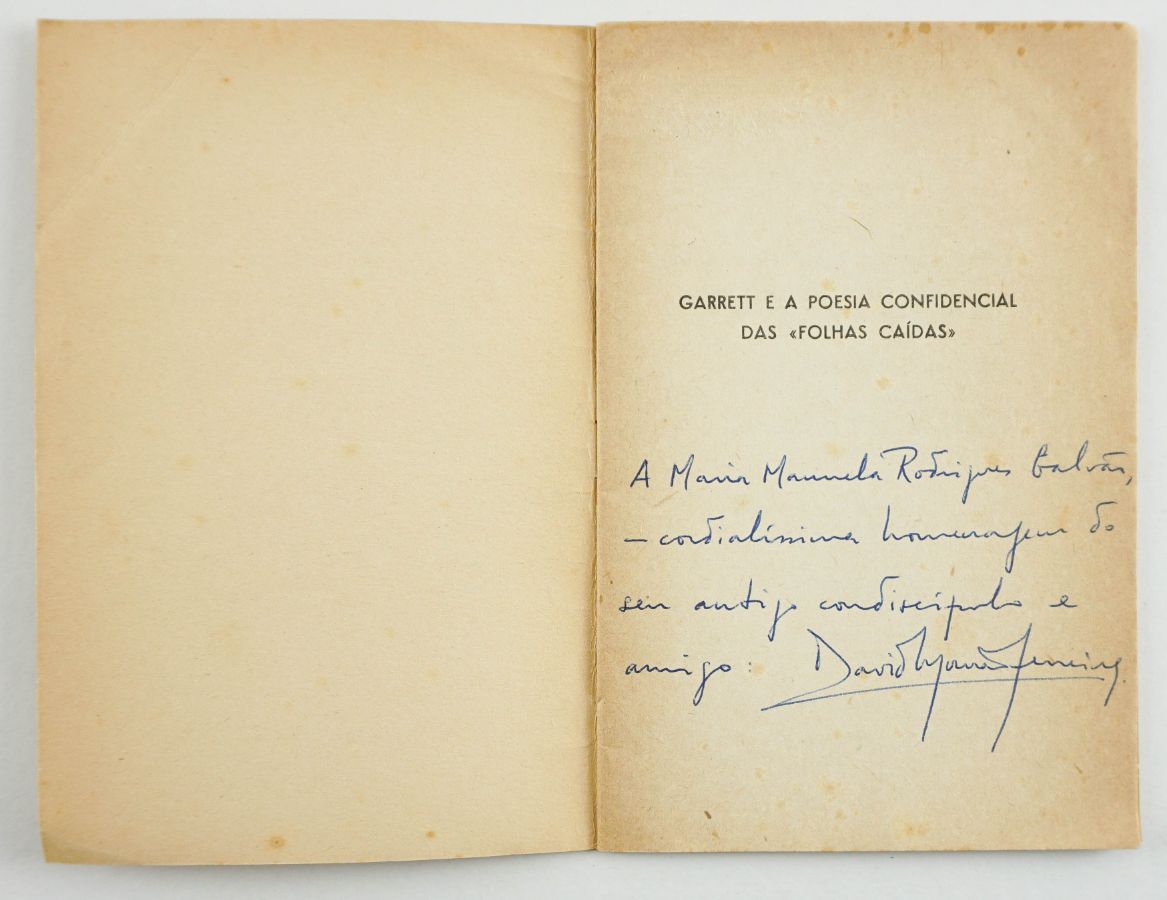 GARRETT E A POESIA CONFIDENCIAL
DAS «FOLHAS CAÍDAS»
A Maria Manuela Rodrigues Galvão,
— cordialíssima homenagem do
seu antigo condiscípulo e
amigo: David Mourão-Ferreira.